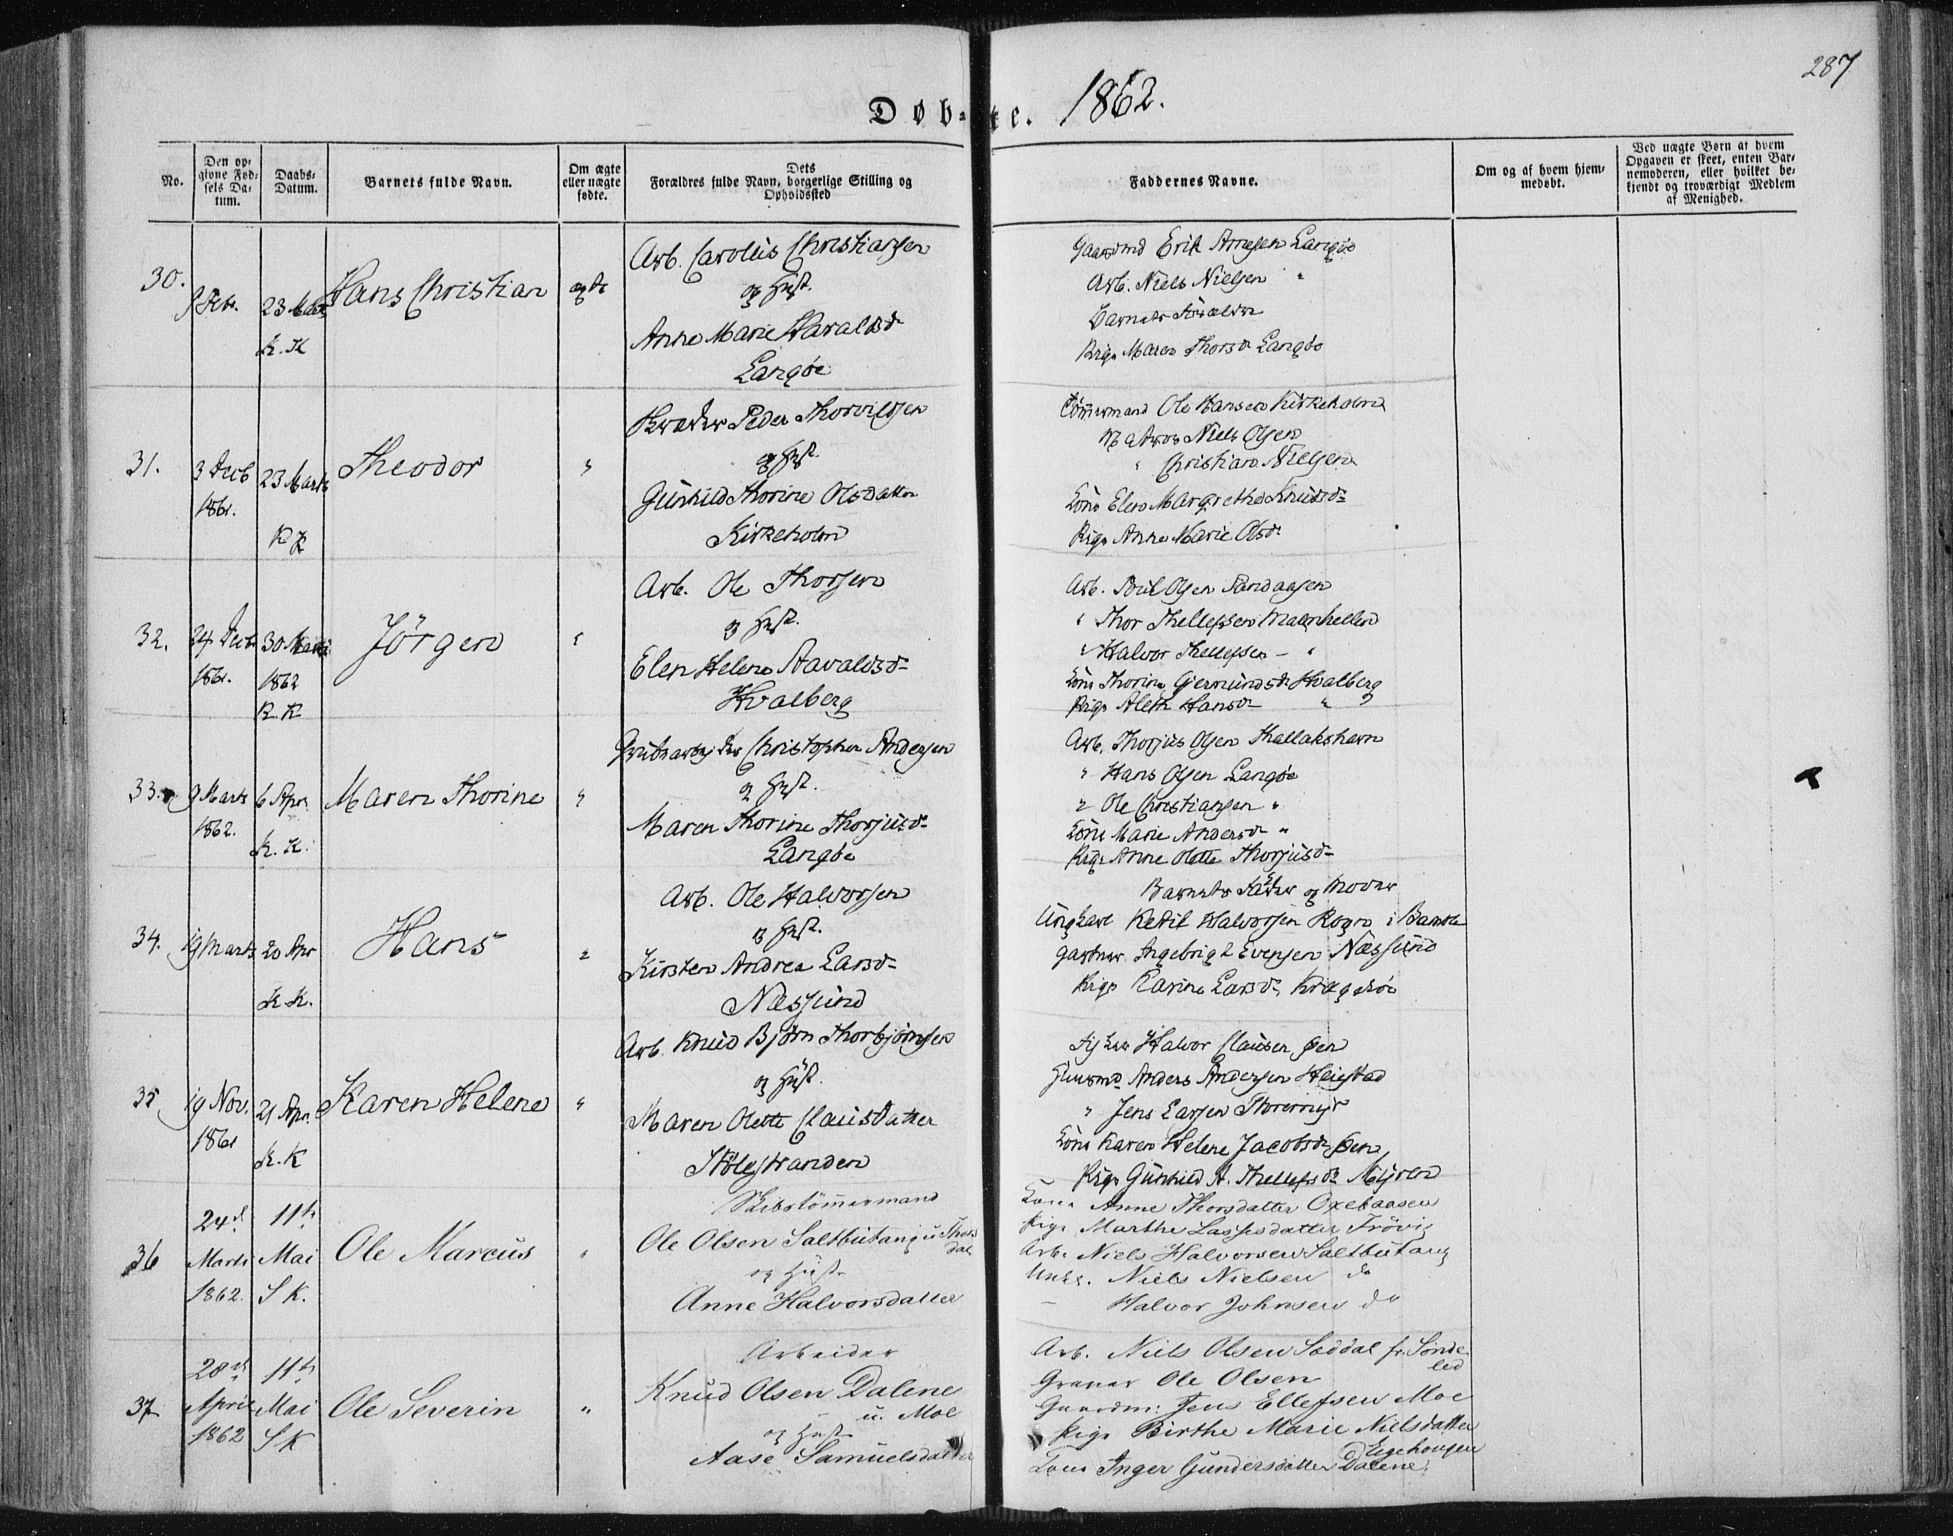 287
Døb-te. 1862.
No.
Den opgivne Fødsels Datum.
Daabs-Datum.
Barnets fulde Navn.
Om ægte eller uægte fødte.
Dets Forældres fulde Navn, borgerlige Stilling og Opholdssted
Faddernes Navne.
Om og af hvem hjemmedøbt.
Ved uægte Børn af hvem Opgaven er skeet, enten Barnemoderen, eller hvilket bekjendt og troværdigt Medlem af Menighed.
30.
Febr.
23 Marts
K. K
Hans Christian
ægte
Arb. Carolus Christiansen
og Hust.
Anne Marie Havaldsd
Langøe
Gaardmd Erik Arnesen Langøe
Arb. Niels Nielsen "
Barnets Forældre
Pige Maren Thorsd Langøe
31.
3 Decb
1861.
23 Marts
K K
Theodor
"
Peder Thorvildsen
og Hust.
Gunhild Thorine Olsdatter
Kirkeholm
Tømmermand Ole Hansen Kirkeholm
Matros Niels Olsen
" Christian Nielsen
Kone Elen Margrethe Knudsd
Pige Anne Marie Olsd
32.
24 Decb
1861.
30 Marts
1862
K. K
Jörgen
"
Arb. Ole Thorsen
og Hust.
Elen Helene Aavaldsd
Hvalberg
Arb. Poul Olsen Sandaasen
" Thor Thellefsen
" Halvor Thellefsen "
Kone Thorine Gjermundsd Hvalberg
Pige Aleth Hansd "
33.
9 Marts
1862.
6 Apr.
K. K.
Maren Thorine
"
Grubearbejder Christopher Andersen
og Hust.
Maren Thorine Thorjusd
Langøe
Arb. Thorjus Olsen
" Hans Olsen Langøe
" Ole Christiansen "
Kone Marie Andersd "
Pige Anne Olette Thorjusd
34.
19 Marts
20 Apr
K. K.
Hans
"
Arb. Ole Halvorsen
og Hust.
Kirsten Andrea Larsd
Næssund
Barnets Fader og Moder
Ungkarl Ketil Halvorsen Rogn i Bamble
Gartner Ingebrigt Evensen Næssund
Pige Karine Larsd, Kragerøe
35
19 Nov.
1861
21 Apr.
K. K
Karen Helene
"
Arb. Knud Bjørn Thorbjørnsen
og Hust.
Maren Olette Clausdatter
Stølestranden
Fisker Halvor Clausen Øen
Huusmd Anders Andersen Heistad
" Jens Larsen
Kone Karen Helene Jacobsd Øen
Pige Gunhild A. Thellefsd Myren
36
24d
Marts
1862.
11te
Mai
S K.
Ole Marcus
"
Skibstømmermand
Ole Olsen Saltbutangen
og Hust
Anne Halvorsdatter
Kone Anne Thorsdatter Oxebaasen
Pige Marthe Lassesdatter Frövig
Arb. Niels Halvorsen Saltbutang
Unkl. Niels Nielsen do
– Halvor Johnsen do
37
28d
April
1862
11te
Mai
S K
Ole Severin
"
Arbeider
Knud Olsen Dalene
u. Moe
og Hust
Aase Samuelsdatter
Arb. Niels Olsen fr. Sönde-
led
Graver Ole Olsen
Gaardm: Jens Ellefsen Moe
Pige Birthe Marie Nielsdatter
Kone Inger Gundersdatter Dalene.